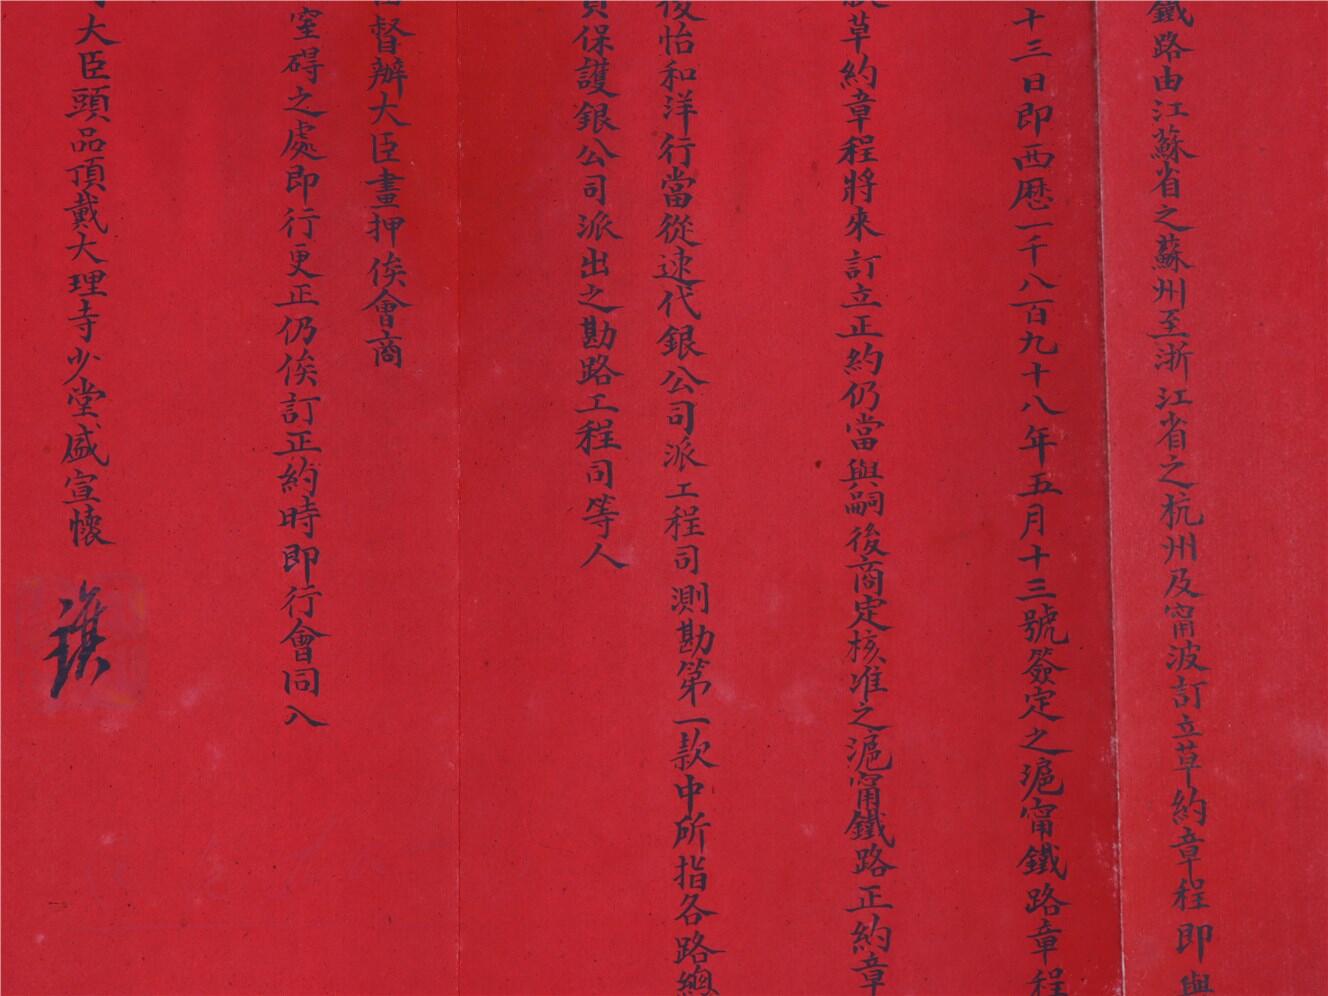 鐵路由江蘇省之蘇州至浙江省之杭州及甯波訂立草約章程即與
十三日即西歷一千八百九十八年五月十三號簽定之滬甯鐵路章程
草約章程將來訂立正約仍當與嗣後商定核准之滬甯鐵路正約章
後怡和洋行當從速代銀公司派工程司測勘第一款中所指各路總
員保護銀公司派出之勘路工程司等人
督辦大臣畫押俟會商
窒碍之處即行更正仍俟訂正約時即行會同入
大臣頭品頂戴大理寺少堂盛宣懷